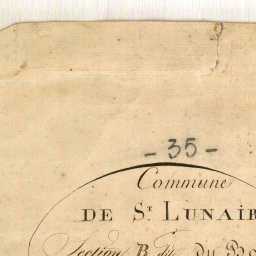 - 35 -
Commune
DE S.T LUNAIR
Section B du